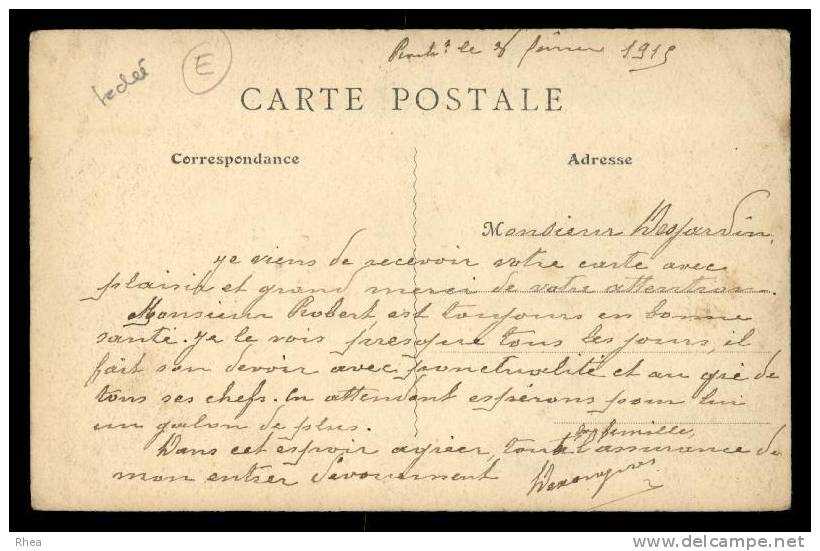 le 8 février 1915
E
CARTE POSTALE
Correspondance
Adresse
Monsieur Desjardin,
je viens de recevoir votre carte avec
plaisir et grand merci de votre attention.
Monsieur Robert, est toujours en bonne
santé. Je le vois presque tous les jours, il
fait son devoir avec ponctualité et au gré de
tous ses chefs. En attendant espérons pour lui
un galon de plus.
famille,
Dans cet espoir agréer, toute l'assurance de
mon entier dévouement
Rhea
www.delcampe.net